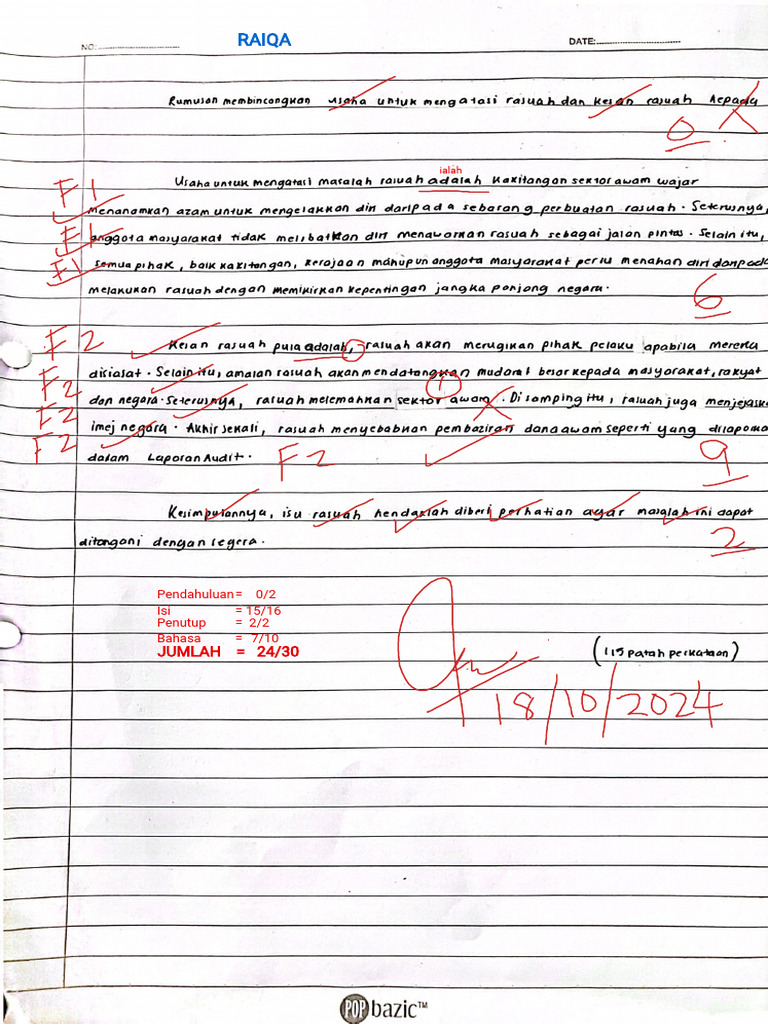 RAIQA
NO:
DATE:
Rumusan membincangkan usaha untuk mengatasi rasuah dan kesan rasuah kepada
0
ialah
F1 Usaha untuk mengatasi masalah rasuah adalah kakitangan sektor awam wajar
menanamkan azam untuk mengelakkan diri daripada sebarang perbuatan rasuah. Seterusnya,
F1 anggota masyarakat tidak melibatkan diri menawarkan rasuah sebagai jalan pintas. Selain itu,
F1 semua pihak, baik kakitangan, kerajaan mahupun anggota masyarakat perlu menahan diri daripada
melakukan rasuah dengan memikirkan kepentingan jangka panjang negara.
6
F2 Kesan rasuah pula adalah, rasuah akan merugikan pihak pelaku apabila mereka
F2 disiasat. Selain itu, amalan rasuah akan mendatangkan mudarat besar kepada masyarakat, rakyat
F2 dan negara. Seterusnya, rasuah melemahkan sektor awam. Di samping itu, rasuah juga menjejaskan
F2 imej negara. Akhir sekali, rasuah menyebabkan pembaziran dana awam seperti yang dilaporkan
dalam Laporan Audit. F2
9
Kesimpulannya, isu rasuah hendaklah diberi perhatian agar masalah ini dapat
ditangani dengan segera.
2
Pendahuluan= 0/2
Isi = 15/16
Penutup = 2/2
Bahasa = 7/10
JUMLAH = 24/30
(115 patah perkataan)
18/10/2024
POP bazic™